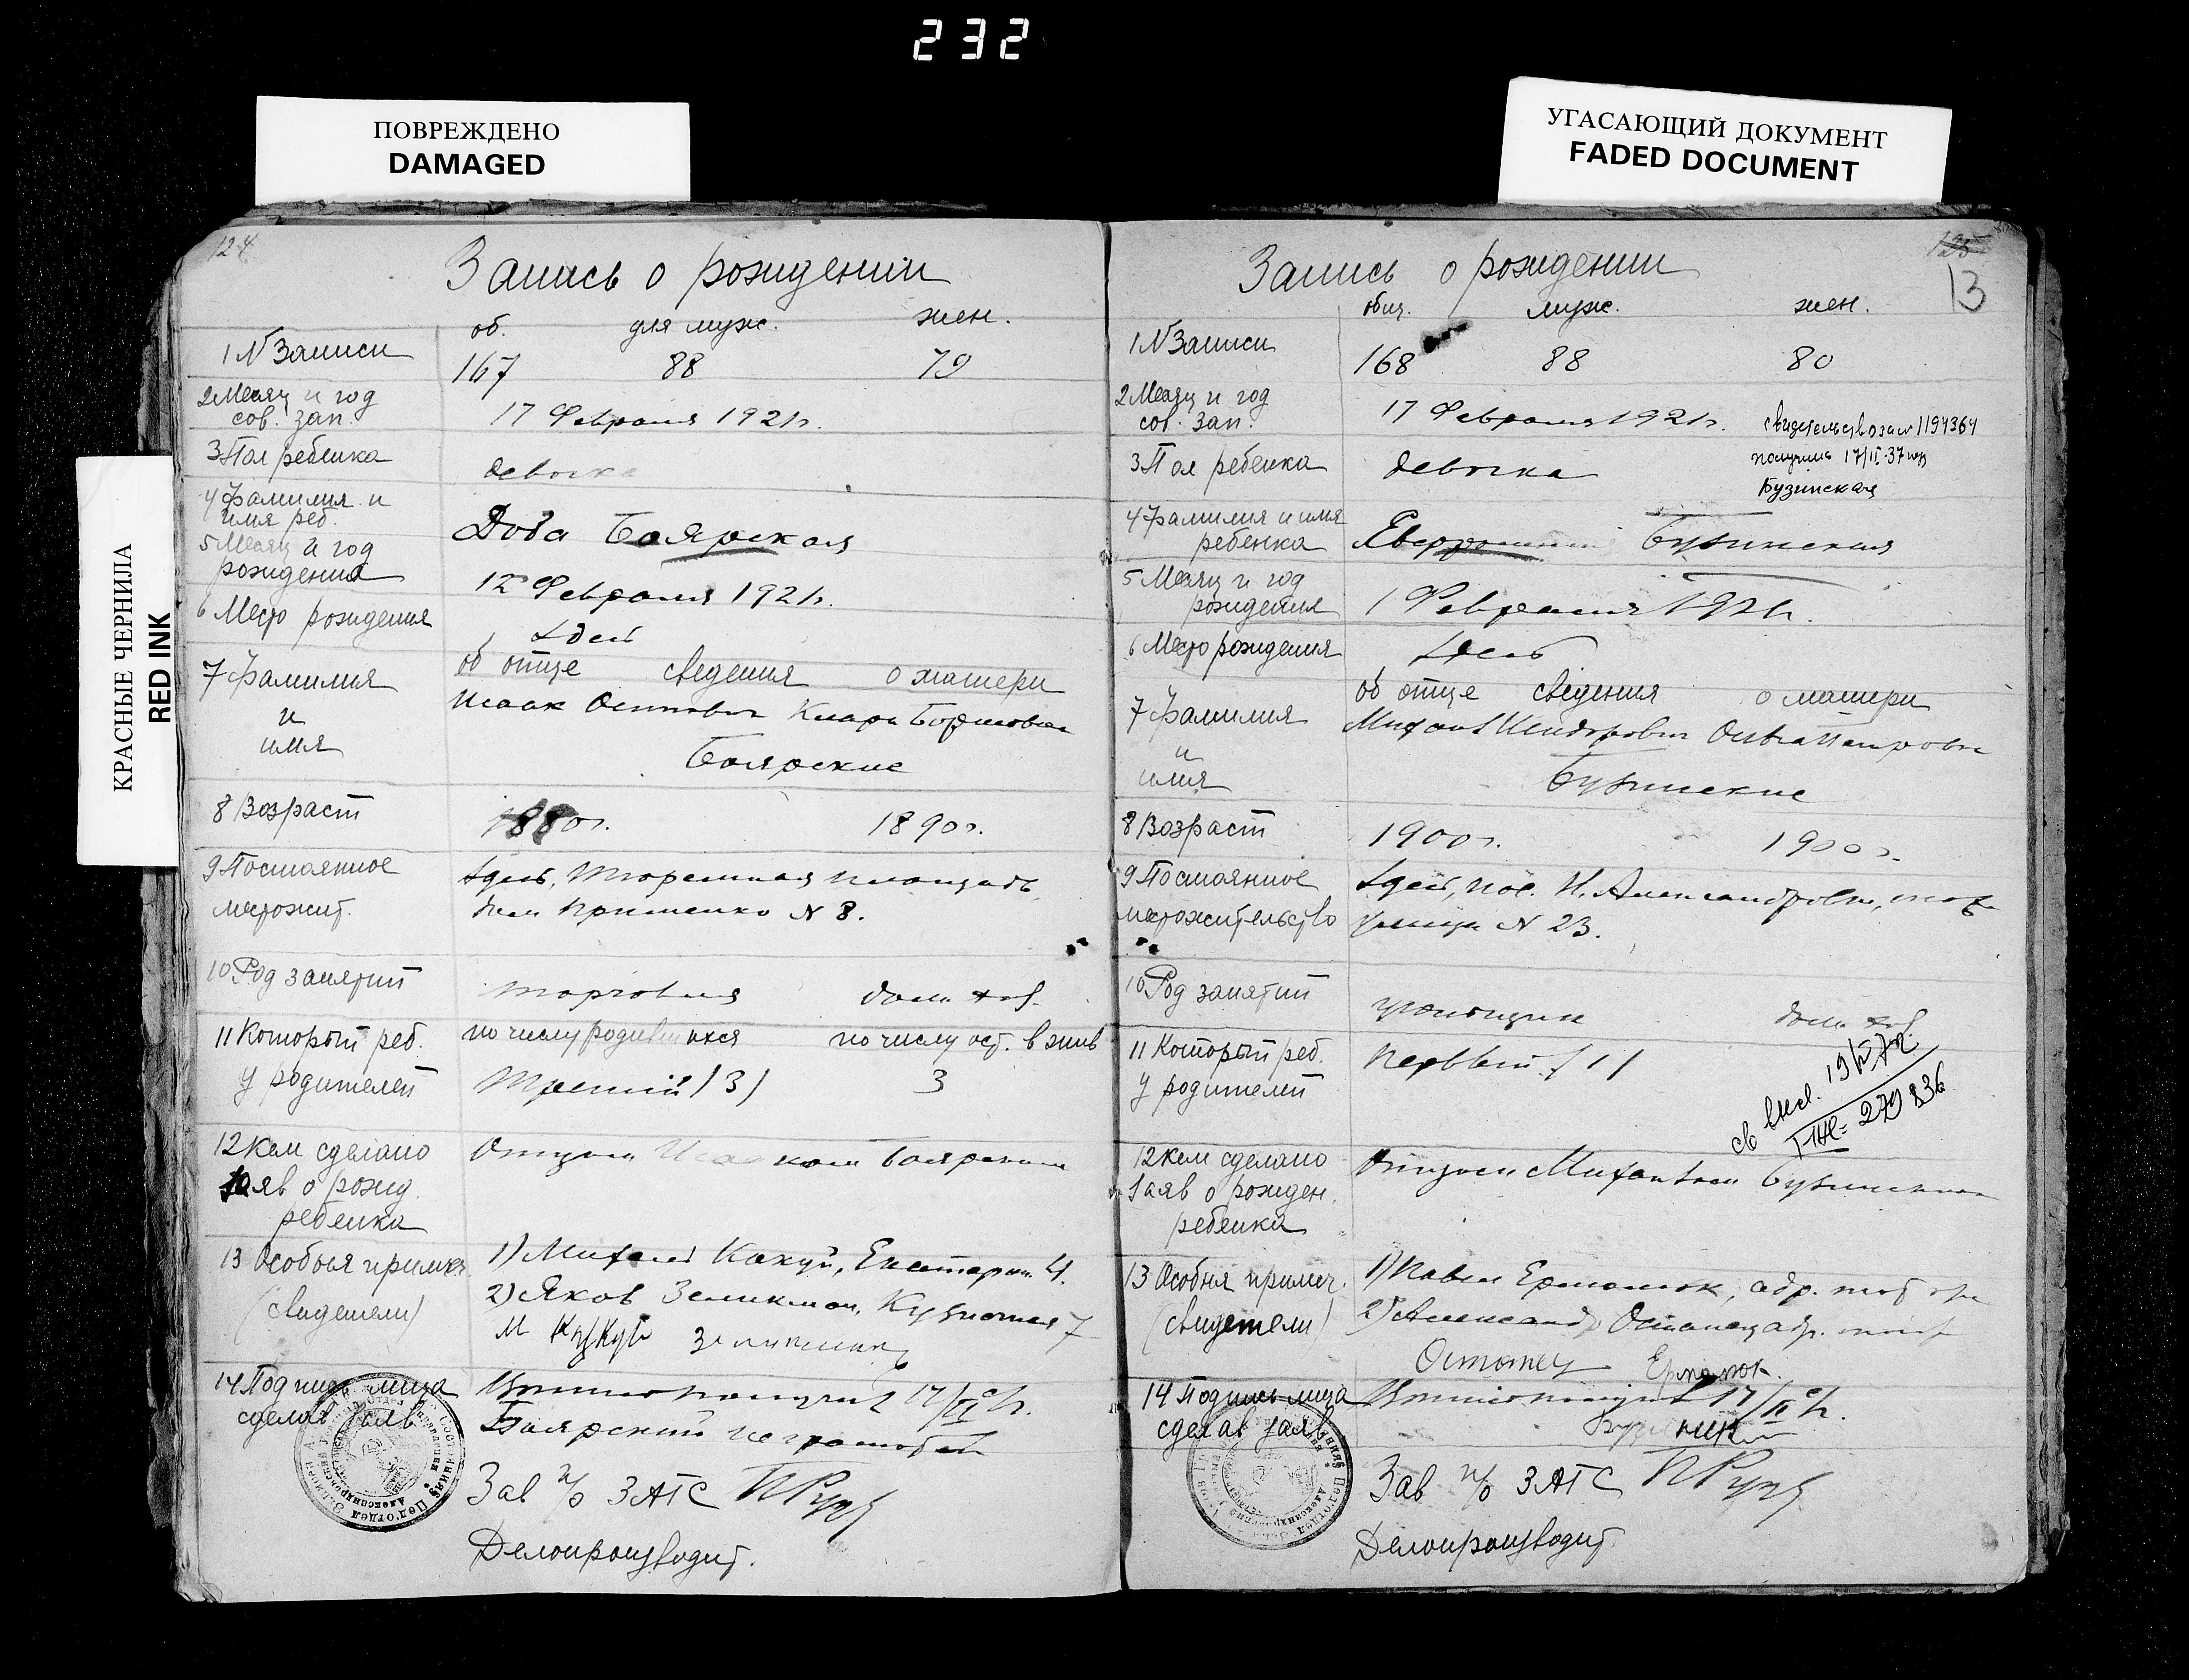 232
ПОВРЕЖДЕНО
DAMAGED
УГАСАЮЩИЙ ДОКУМЕНТ
FADED DOCUMENT
КРАСНЫЕ ЧЕРНИЛА
RED INK
124
Запись о рождении
об. для муж. жен.
1 N Записи 167 88 79
2 Месяц и год сов. зап. 17 Февраля 1921 г.
3 Пол ребенка девочка
4 Фамилия и имя реб. Дова Боярская
5 Месяц и год рождения 12 Февраля 1921 г.
6 Место рождения Здесь
об отце сведения о матери
7 Фамилия и имя Исаак Осипович Клара Борисовна
Боярские
8 Возраст 1880 г. 1890 г.
9 Постоянное местожит. Здесь, Тюремная площадь,
дом N 8.
10 Род занятий торговля дом. хоз.
11 Который реб. по числу родившихся по числу ост. в жив
у родителей Третий (3) 3
12 Кем сделано заяв о рожд. ребенка Отцом Исааком Боярским
13 Особыя примеч. (свидетели) 1) Михаил Кокуй, Екатерин. 4.
2) Яков Зеликман, Кузнечная 7
14 Подпись лица сделав заяв получил 17/II с/г.
Боярский неграмотный
Зав п/о ЗАГС
Делопроизводит.
125
13
Запись о рождении
общ. муж. жен.
1 N Записи 168 88 80
2 Месяц и год сов. зап. 17 Февраля 1921 г.
свидетельство за N 1194364
получила 17/II-37
Бузинская
3 Пол ребенка девочка
4 Фамилия и имя ребенка Бузинская
5 Месяц и год рождения 1 Февраля 1921 г.
6 Место рождения Здесь
об отце сведения о матери
7 Фамилия и имя Михаил Исидорович
Бузинские
8 Возраст 1900 г. 1900 г.
9 Постоянное местожительство Здесь, пос. Н. Александровка,
улица N 23.
10 Род занятий дом. хоз.
11 Который реб. у родителей Первый (1)
279836
12 Кем сделано заяв о рожден. ребенка Отцом Михаилом Бузинским
13 Особыя примеч. (свидетели) 1) Павел Ермолюк, адр. тот же
2) Александр Остапец адр. тот
Остапец
14 Подпись лица сделав заяв получил 17/II с/г.
Зав п/о ЗАГС
Делопроизводит